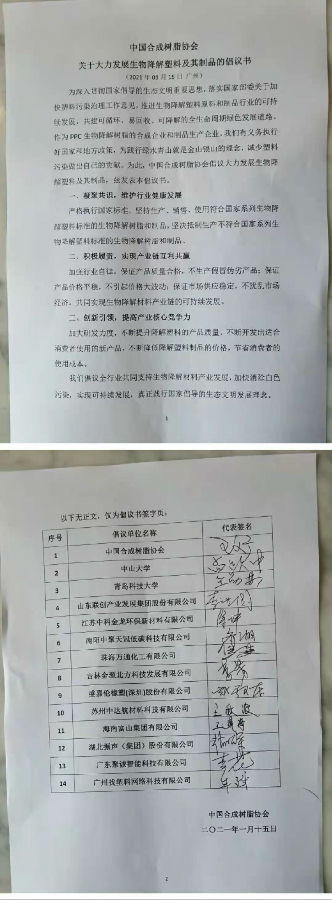 中国合成树脂协会
关于大力发展生物降解塑料及其制品的倡议书
(2021 年 03 月 15 日 广州)
为深入贯彻国家倡导的生态文明重要思想，落实国家部委关于加
快塑料污染治理工作意见，推进生物降解塑料原料和制品行业的可持
续发展，共建可循环、易回收、可降解的全生命周期绿色发展道路。
作为 PPC 生物降解树脂的合成企业和制品生产企业，我们有义务执行
好国家和地方政策，为践行绿水青山就是金山银山的理念，减少塑料
污染做出自己的贡献。为此，中国合成树脂协会倡议大力发展生物降
解塑料及其制品，兹发表本倡议书。
一、凝聚共识，维护行业健康发展
严格执行国家标准，坚持生产、销售、使用符合国家系列生物降
解塑料标准的生物降解树脂和制品，坚决抵制生产不符合国家系列生
物降解塑料标准的生物降解树脂和制品。
二、积极履责，实现产业链互利共赢
加强行业自律，保证产品质量合格，不生产假冒伪劣产品；保证
产品价格平稳，不引起价格大波动；保证市场供应稳定，不扰乱市场
经济，共同实现生物降解材料产业链的可持续发展。
三、创新引领，提高产业核心竞争力
加大研发力度，不断提升降解塑料的产品质量，不断开发出适合
消费者使用的新产品，不断降低降解塑料制品的价格，节省消费者的
使用成本。
我们倡议全行业共同支持生物降解材料产业发展，加快消除白色
污染，实现可持续发展，真正践行国家倡导的生态文明发展理念。
1
以下无正文，仅为倡议书签字页：
序号 倡议单位名称 代表签名
1 中国合成树脂协会
2 中山大学
3 青岛科技大学
4 山东联创产业发展集团股份有限公司
5 江苏中科金龙环保新材料有限公司
6 南阳中聚天冠低碳科技有限公司
7 珠海万通化工有限公司
8 吉林金源北方科技发展有限公司
9 盛嘉伦橡塑(深圳)股份有限公司
10 苏州中达航材料科技有限公司
11 海南富山集团有限公司
12 湖北振声（集团）股份有限公司
13 广东聚诚智能科技有限公司
14 广州找塑料网络科技有限公司
中国合成树脂协会
二〇二一年一月十五日
2